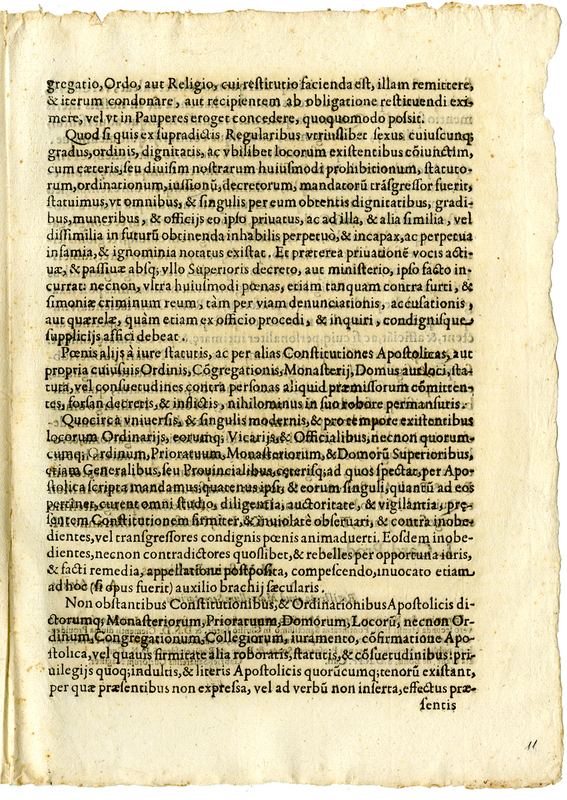 gregatio, Ordo, aut Religio, cui restitutio facienda est, illam remittere,
& iterum condonare, aut recipientem ab obligatione restituendi exi-
mere, vel vt in Pauperes eroget concedere, quoquomodo possit.
Quod si quis ex supradictis Regularibus vtriuslibet sexus cuiuscunq;
gradus, ordinis, dignitatis, ac vbilibet locorum existentibus cōiunctim,
cum cæteris, seu diuisim nostrarum huiusmodi prohibitionum, statuto-
rum, ordinationum, iussionū, decretorum, mandatorū trāsgressor fuerit,
statuimus, vt omnibus, & singulis per eum obtentis dignitatibus, gradi-
bus, muneribus, & officijs eo ipso priuatus, ac ad illa, & alia similia, vel
dissimilia in futurū obtinenda inhabilis perpetuò, & incapax, ac perpetua
infamia, & ignominia notatus existat. Et præterea priuationē vocis acti-
uæ, & passiuæ absq; vllo Superioris decreto, aut ministerio, ipso facto in-
currat: necnon, vltra huiusmodi pœnas, etiam tanquam contra furti, &
simoniæ criminum reum, tàm per viam denunciationis, accusationis,
aut quærelæ, quàm etiam ex officio procedi, & inquiri, condignisque
supplicijs affici debeat.
Pœnis alijs à iure statutis, ac per alias Constitutiones Apostolicas, aut
propria cuiusuis Ordinis, Cōgregationis, Monasterij, Domus aut loci, sta-
tuta, vel consuetudines contra personas aliquid præmissorum cōmitten-
tes, forsan decretis, & inflictis, nihilominus in suo robore permansuris.
Quocirca vniuersis, & singulis modernis, & pro tempore existentibus
locorum Ordinarijs, eorumq; Vicarijs, & Officialibus, necnon quorum-
cumq; Ordinum, Prioratuum, Monasteriorum, & Domorū Superioribus,
etiam Generalibus, seu Prouincialibus, cęterisq; ad quos spectat, per Apo-
stolica scripta mandamus, quatenus ipsi, & eorum singuli, quantū ad eos
pertinet, curent omni studio, diligentia, auctoritate, & vigilantia, pręs-
sentem Constitutionem firmiter, & inuiolatè obseruari, & contra inobe-
dientes, vel transgressores condignis pœnis animaduerti. Eosdem inobe-
dientes, necnon contradictores quoslibet, & rebelles per opportuna iuris,
& facti remedia, appellatione postposita, compescendo, inuocato etiam
ad hoc (si opus fuerit) auxilio brachij sæcularis.
Non obstantibus Constitutionibus, & Ordinationibus Apostolicis di-
ctorumq; Monasteriorum, Prioratuum, Domorum, Locorū, necnon Or-
dinum, Congregationum, Collegiorum, iuramento, cōfirmatione Apo-
stolica, vel quauis firmitate alia roboratis, statutis, & cōsuetudinibus: pri-
uilegijs quoq; indultis, & literis Apostolicis quorūcumq; tenorū existant,
per quæ præsentibus non expressa, vel ad verbū non inserta, effectus præ-
sentis
11